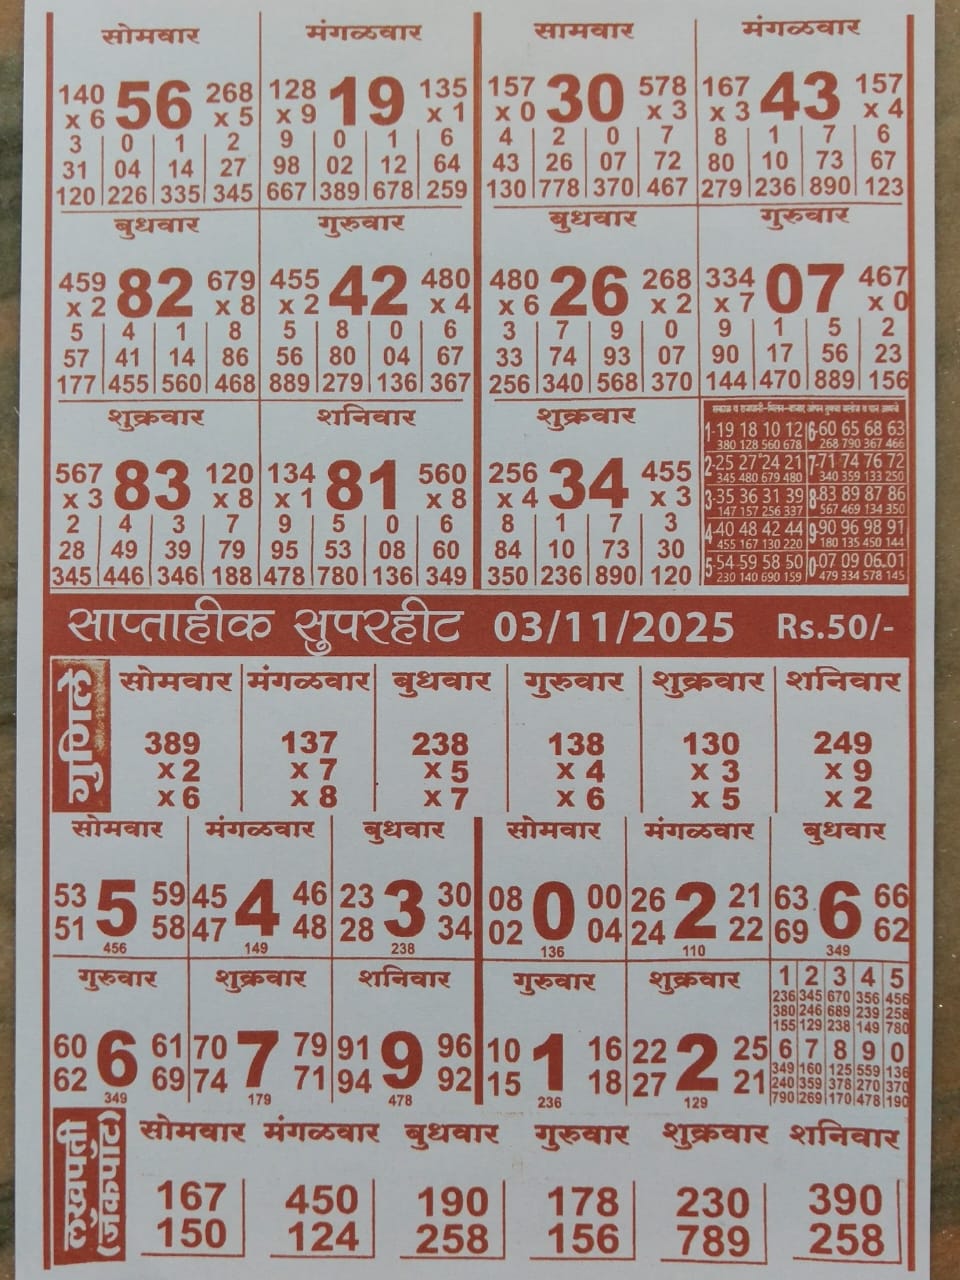 सोमवार मंगळवार सामवार मंगळवार
140 56 268 128 19 135 157 30 578 167 43 157
x 6 x 5 x 9 x 1 x 0 x 3 x 3 x 4
3 0 1 2 9 0 1 6 4 2 0 7 8 1 7 6
31 04 14 27 98 02 12 64 43 26 07 72 80 10 73 67
120 226 335 345 667 389 678 259 130 778 370 467 279 236 890 123
बुधवार गुरुवार बुधवार गुरुवार
459 82 679 455 42 480 480 26 268 334 07 467
x 2 x 8 x 2 x 4 x 6 x 2 x 7 x 0
5 4 1 8 5 8 0 6 3 7 9 0 9 1 5 2
57 41 14 86 56 80 04 67 33 74 93 07 90 17 56 23
177 455 560 468 889 279 136 367 256 340 568 370 144 470 889 156
शुक्रवार शनिवार शुक्रवार
567 83 120 134 81 560 256 34 455
x 3 x 8 x 1 x 8 x 4 x 3
2 4 3 7 9 5 0 6 8 1 7 3
28 49 39 79 95 53 08 60 84 10 73 30
345 446 346 188 478 780 136 349 350 236 890 120
1-19 18 10 12 6-60 65 68 63
380 128 560 678 268 790 367 466
2-25 27 24 21 7-71 74 76 72
345 480 679 480 340 359 133 250
3-35 36 31 39 8-83 89 87 86
147 157 256 337 567 469 134 350
4-40 48 42 44 9-90 96 98 91
455 167 130 220 180 135 450 144
5-54 59 58 50 0-07 09 06 01
230 140 690 159 479 334 578 145
साप्ताहीक सुपरहीट 03/11/2025 Rs.50/-
गुणिले
सोमवार मंगळवार बुधवार गुरुवार शुक्रवार शनिवार
389 137 238 138 130 249
x 2 x 7 x 5 x 4 x 3 x 9
x 6 x 8 x 7 x 6 x 5 x 2
सोमवार मंगळवार बुधवार सोमवार मंगळवार बुधवार
53 5 59 45 4 46 23 3 30 08 0 00 26 2 21 63 6 66
51 58 47 48 28 34 02 04 24 22 69 62
456 149 238 136 110 349
गुरुवार शुक्रवार शनिवार गुरुवार शुक्रवार
60 6 61 70 7 79 91 9 96 10 1 16 22 2 25
62 69 74 71 94 92 15 18 27 21
349 179 478 236 129
1 2 3 4 5
236 345 670 356 456
380 246 689 239 258
155 129 238 149 780
6 7 8 9 0
349 160 125 559 136
240 359 378 270 370
790 269 170 478 190
लखपती
(जकपॉट)
सोमवार मंगळवार बुधवार गुरुवार शुक्रवार शनिवार
167 450 190 178 230 390
150 124 258 156 789 258